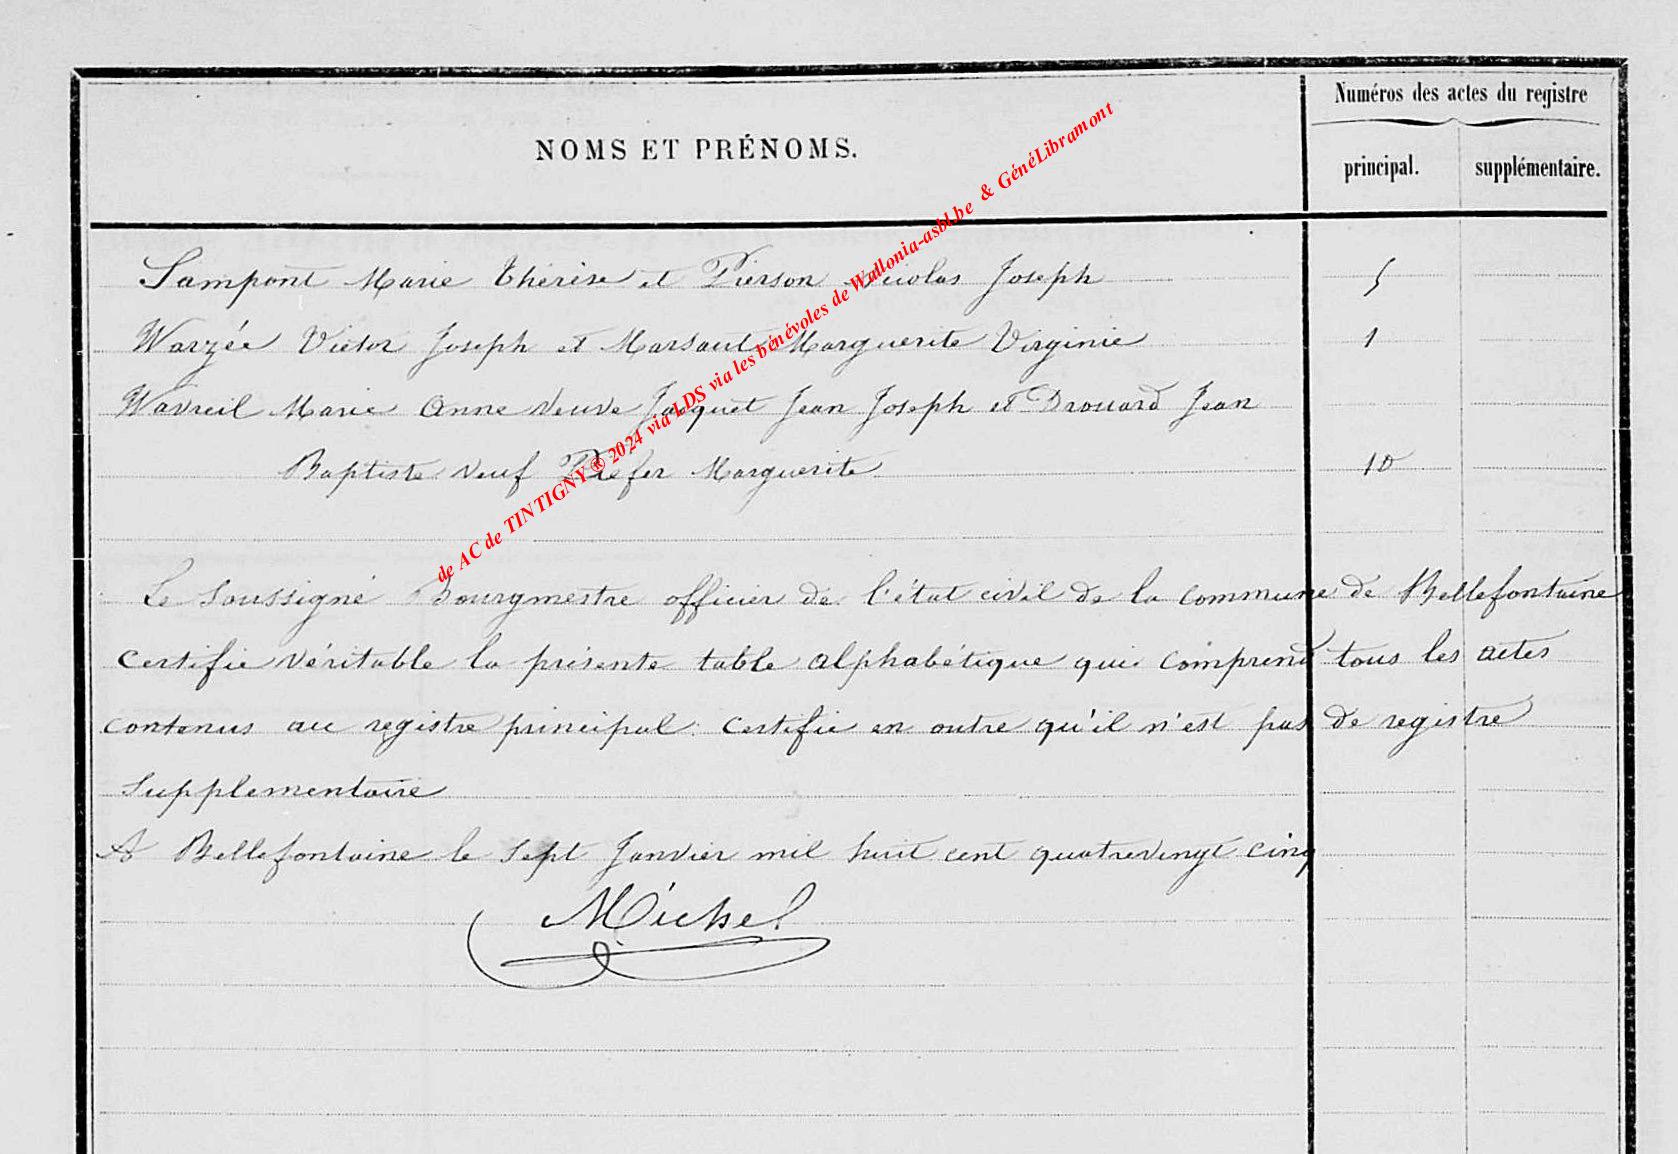 Numéros des actes du registre
NOMS ET PRÉNOMS.
principal. supplémentaire.
Sampont Marie Thérèse et Pierson Nicolas Joseph 5
Warzée Victor Joseph et Marsaut Marguerite Virginie 1
Wavreil Marie Anne veuve Jacquet Jean Joseph et Drouard Jean
Baptiste veuf Marguerite 10
Le soussigné Bourgmestre officier de l'état civil de la commune de Bellefontaine
certifie véritable la présente table alphabétique qui comprend tous les actes
contenus au registre principal. Certifie en outre qu'il n'est pas de registre
supplementaire
A Bellefontaine le sept Janvier mil huit cent quatrevingt cinq
Michel
de AC de TINTIGNY® 2024 via LDS via les bénévoles de Wallonia-asbl.be & GénéLibramont